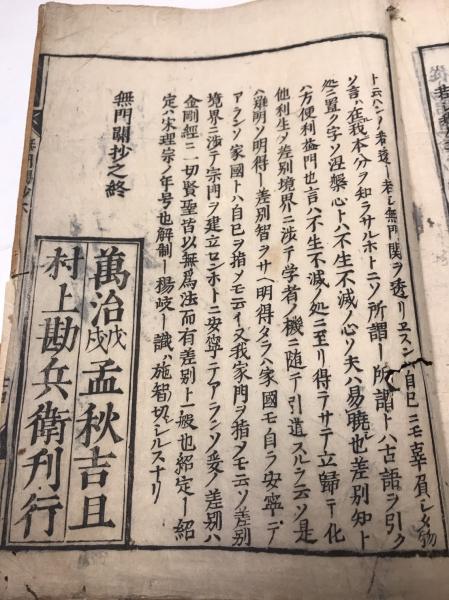 ト云ハンノ者透ー若シ無門関ヲ透リヱスンハ自已ニモ辜負シタ物
ソ言ハ在我本分ヲ知ラサルホトニソ所謂ー所謂トハ古語ヲ引ク
処ニ置ク字ソ涅槃心トハ不生不滅ノ心ソ夫ハ易暁也差別知ト
ハ方便利益門也言ハ不生不滅ノ処ニ至リ得テサテ立歸テ化
他利生ノ差別境界ニ渉テ学者ノ機ニ随テ引導スルヲ云ソ是
ハ難明ソ明得ー差別智ヲサヘ明得タラハ家國モ自ラ安寧ニテ
アランソ家國トハ自已ヲ指メモ云イ又我家門ヲ指メモ云ソ差別
境界ニ渉テ宗門ヲ建立センホトニ安寧ニテアランソ爰ノ差別ハ
金剛經ニ一切賢聖皆以無爲法而有差別上一般也紹定ー紹
定ハ宋理宗ノ年号也解制ー楊岐ー識ハ施智切シルスナリ
無門關抄之終
萬治戊戌孟秋吉旦
村上勘兵衛刊行
無門関抄